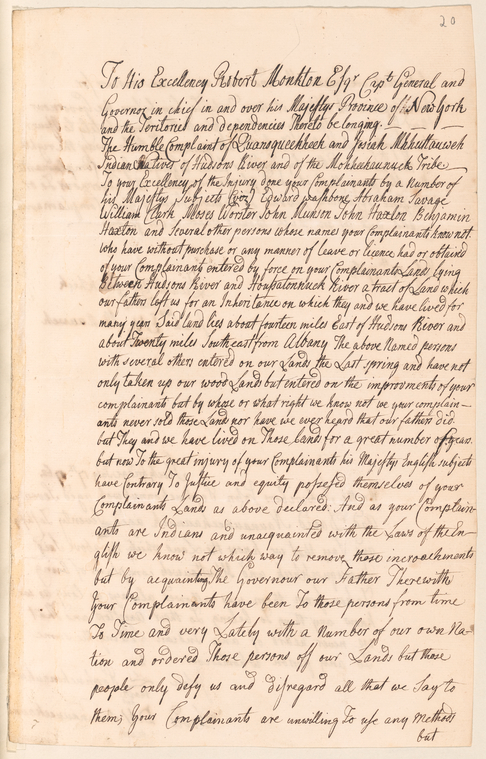 20
To His Excellency Robert Monkton Esqr Capt General and
Governor in chief in and over his Majestys Province of New York
and the Teritories and dependencies Thereto belonging.
The Humble Complaint of Quansqueekheek and Josiah
Indian Natives of Hudsons River and of the Tribe
To your Excellency of the Injury done your Complainants by a Number of
his Majestys Subjects (viz) Edward washbone Abraham Savage
William Clark Moses Worster John Munson John Haxton Benjamin
Haxton and Several other persons whose names your Complainants know not
who have without purchase or any manner of leave or licence had or obtained
of your Complainants entered by force on your Complainants Land lying
Between Hudsons River and Houssatonnuck River a tract of Land which
our fathers left us for an Inheritance on which they and we have lived for
many years Said land lies about fourteen miles East of Hudsons River and
about Twenty miles South east from Albany The above Named persons
with several others entered on our Lands the Last spring and have not
only taken up our wood Lands but entered on the improvments of your
complainants but by whose or what right we know not we your complain-
ants never sold those Land nor have we ever heard that our fathers did
but They and we have lived on Those lands for a great number of years.
but now To the great injury of your Complainants his Majestys English subjects
have Contrary To Justice and equity possessed themselves of your
Complainants Lands as above declared: And as your Complain-
ants are Indians and unaquainted with the Laws of the En-
glish we know not which way to remove those incroachments
but by acquainting The Governour our Father Therewith
Your Complainants have been To those persons from time
To Time and very Lately with a Number of our own Na-
tion and ordered Those persons off our Lands but those
people only defy us and disregard all that we Say to
them; Your Complainants are unwilling To use any Methods
but